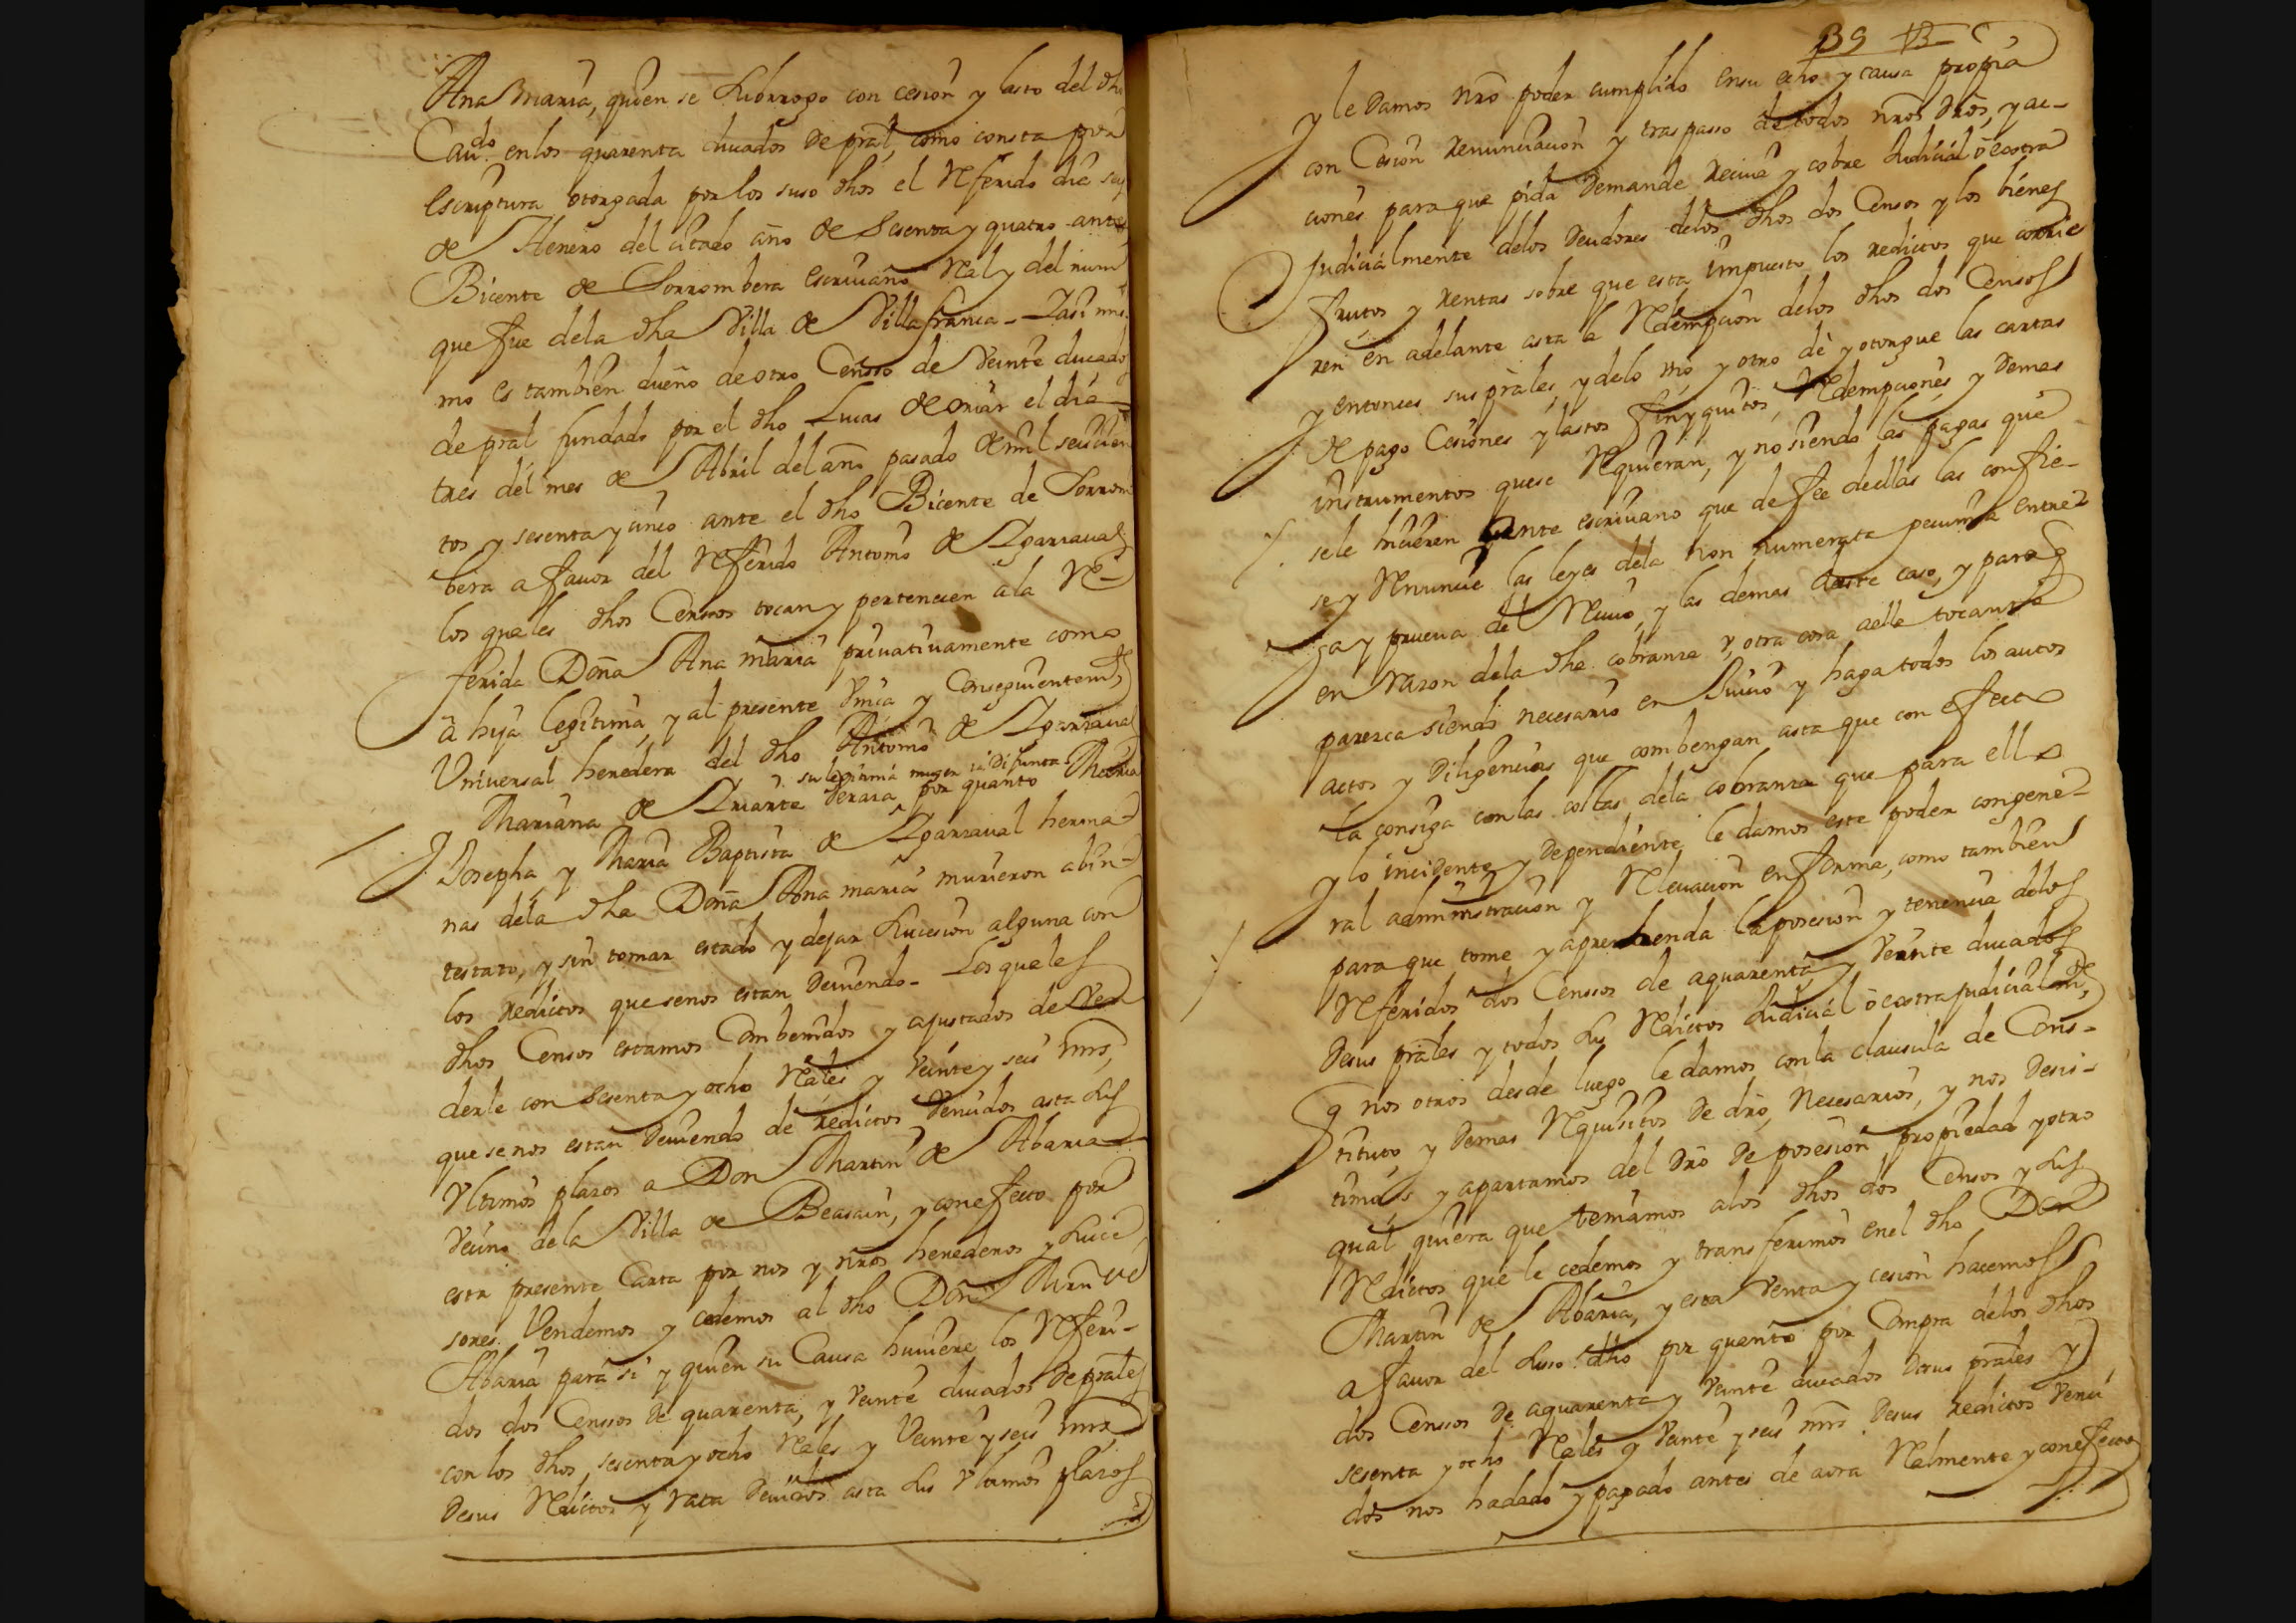 Ana Maria, quien se subrrogo con cesion y lasto del dho
Caudo. en los quarenta ducados de pral, como consta por
escriptura otorgada por los suso dhos el referido dia seis
de Henero del citado año de sesenta y quatro ante
Bicente de Sorrombera escriuano Real y del num
que fue de la dha Villa de Villafranca - Y asi mis
mo es tambien dueño de otro Censso de veinte ducados
de pral fundado por el dho Lucas de el dia
tres del mes de Abril del año pasado de mil seiscien
tos y sesenta y cinco ante el dho Bicente de Sorrom
bera a favor del referido Antonio de Ygarzaual
los quales dhos Censsos tocan y pertenecen a la Re-
ferida Doña Ana maria priuatiuamente como
a hija legitima, y al presente Vnica y Conseguientemte,
Vniuersal heredera del dho Antonio de Ygarzaual
su legitima muger ia Difunta
Mariana de Yriarte por quanto Maria
Josepha y Maria Baptista de Ygarzaual herma-
nas de la dha Doña Ana maria murieron abin-
testato, y sin tomar estado y dejar sucesion alguna con
los redictos que se nos estan deuiendo - Los quales
dhos Censos estamos Combenidos y ajustados de Ven
derle con sesenta y ocho Rales y veinte y seis mrs,
que se nos estan deuiendo de redictos venidos asta sus
Vltimos plazos a Don Martin de Abaria
vecino de la Villa de Beasain, y con efecto por
esta presente Carta por nos y nros herederos y suce
sores Vendemos y cedemos al dho Don Martn de
Abaria para si y quien su Causa huuiere los Referi-
dos dos Censsos de quarenta, y veinte ducados de prales
con los dhos sesenta y ocho Rales y Veinte y seis mrs
de sus Redictos y rata Deuidos asta sus Vltimos plazos
39
y le damos nro poder cumplido en su echo y causa propia
con Cesion Renunciacion y traspasso de todos nros dros, y ac-
ciones para que pida Demande reciua y cobre Judicial o extra
Judicialmente de los Deudores de los dhos dos Censos y los bienes
frutos y rentas sobre que esta impuesto los redictos que corrie
ren en adelante asta la Redempcion de los dhos dos Censos
y entonces sus prales, y de lo vno y otro dè y otorgue las cartas
de pago Cesiones y lastos Finyquitos, Redempciones, y demas
instrumentos que se Requieran, y no siendo las pagas que
se le hicieren ante escriuano que de fee de ellas las confie-
se y Renuncie las leyes de la non numerata pecunia entre-
ga y prueua del Reciuo, y las demas deste caso, y para q
en razon de la dha cobranza y otra cosa a ello tocante
parezca siendo necesario en Juicio y haga todos los autos
actos y diligencias que combengan asta que con efecto
la consiga con las costas de la cobranza que para ello
y lo incidente y dependiente le damos este poder con gene-
ral administracion y Releuacion en forma, como tambien
para que tome y aprehenda la posesion y tenencia de los
Referidos dos Censsos de aquarenta, y veinte ducados
de sus prales y todos sus Redictos Judicial o extra judicialmte,
q nos otros desde luego le damos con la clausula de Cons-
tituto y demas Requisitos de dro, Necesarios, y nos Desis-
timos y apartamos del dro de posesion propiedad y otro
qual quiera que teniamos a los dhos dos Censos y sus
Redictos que le cedemos y transferimos en el dho Don
Martin de Abaria, y esta Venta y cesion hacemos
a fauor del suso dho por quanto por Compra de los dhos
dos Censsos de aquarenta y veinte ducados de sus prales y
sesenta y ocho Rales y veinte y seis mrs de sus redictos Venci
dos nos ha dado y pagado antes de aora Realmente y con efecto